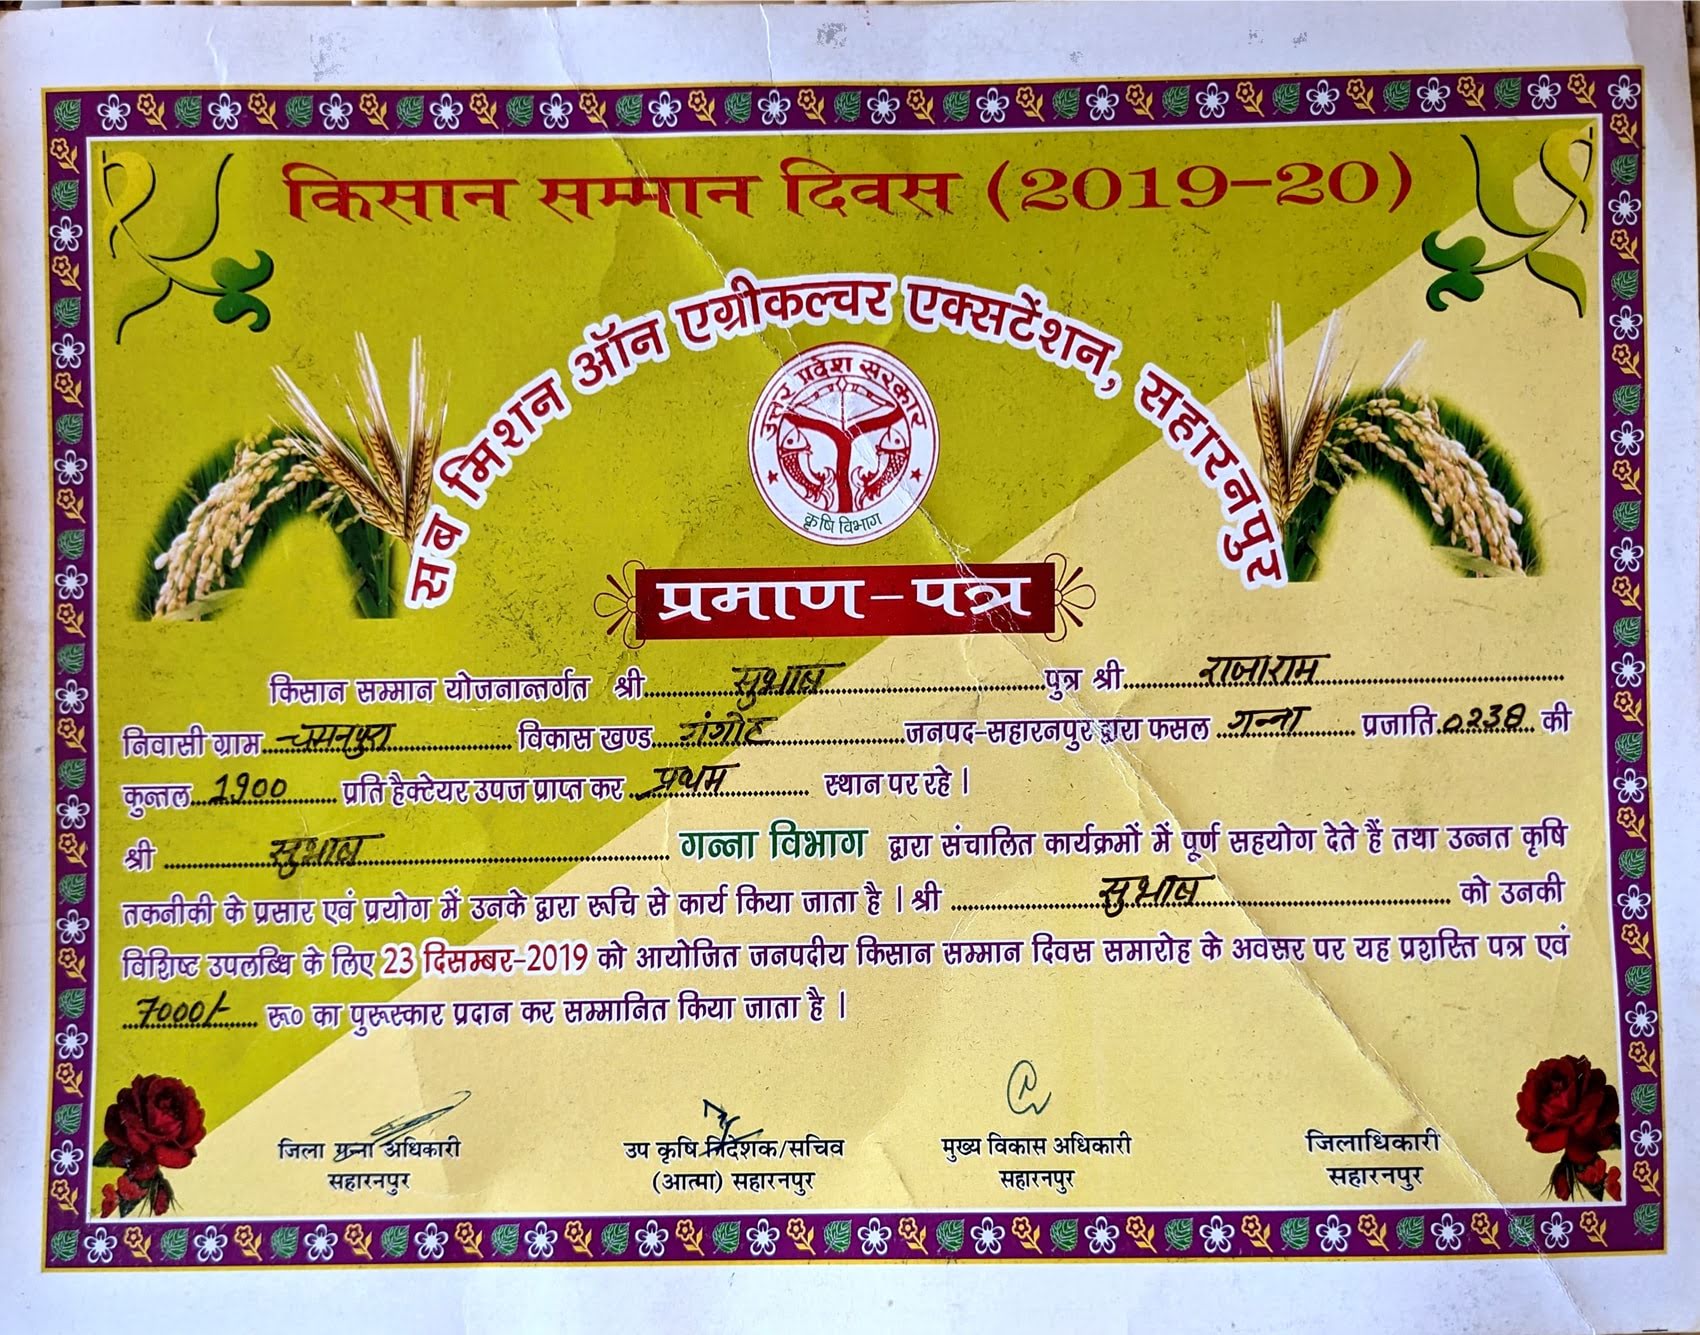 किसान सम्मान दिवस (2019-20)
सब मिशन ऑन एग्रीकल्चर एक्सटेंशन, सहारनपुर
उत्तर प्रदेश सरकार
कृषि विभाग
प्रमाण-पत्र
किसान सम्मान योजनान्तर्गत श्री सुभाष पुत्र श्री राजाराम
निवासी ग्राम चमनपुरा विकास खण्ड गंगोह जनपद-सहारनपुर द्वारा फसल गन्ना प्रजाति 0238 की
कुन्तल 1900 प्रति हैक्टेयर उपज प्राप्त कर प्रथम स्थान पर रहे |
श्री सुभाष गन्ना विभाग द्वारा संचालित कार्यक्रमों में पूर्ण सहयोग देते हैं तथा उन्नत कृषि
तकनीकी के प्रसार एवं प्रयोग में उनके द्वारा रूचि से कार्य किया जाता है | श्री सुभाष को उनकी
विशिष्ट उपलब्धि के लिए 23 दिसम्बर-2019 को आयोजित जनपदीय किसान सम्मान दिवस समारोह के अवसर पर यह प्रशस्ति पत्र एवं
7000/- रू० का पुरूस्कार प्रदान कर सम्मानित किया जाता है |
जिला गन्ना अधिकारी उप कृषि निदेशक/सचिव मुख्य विकास अधिकारी जिलाधिकारी
सहारनपुर (आत्मा) सहारनपुर सहारनपुर सहारनपुर